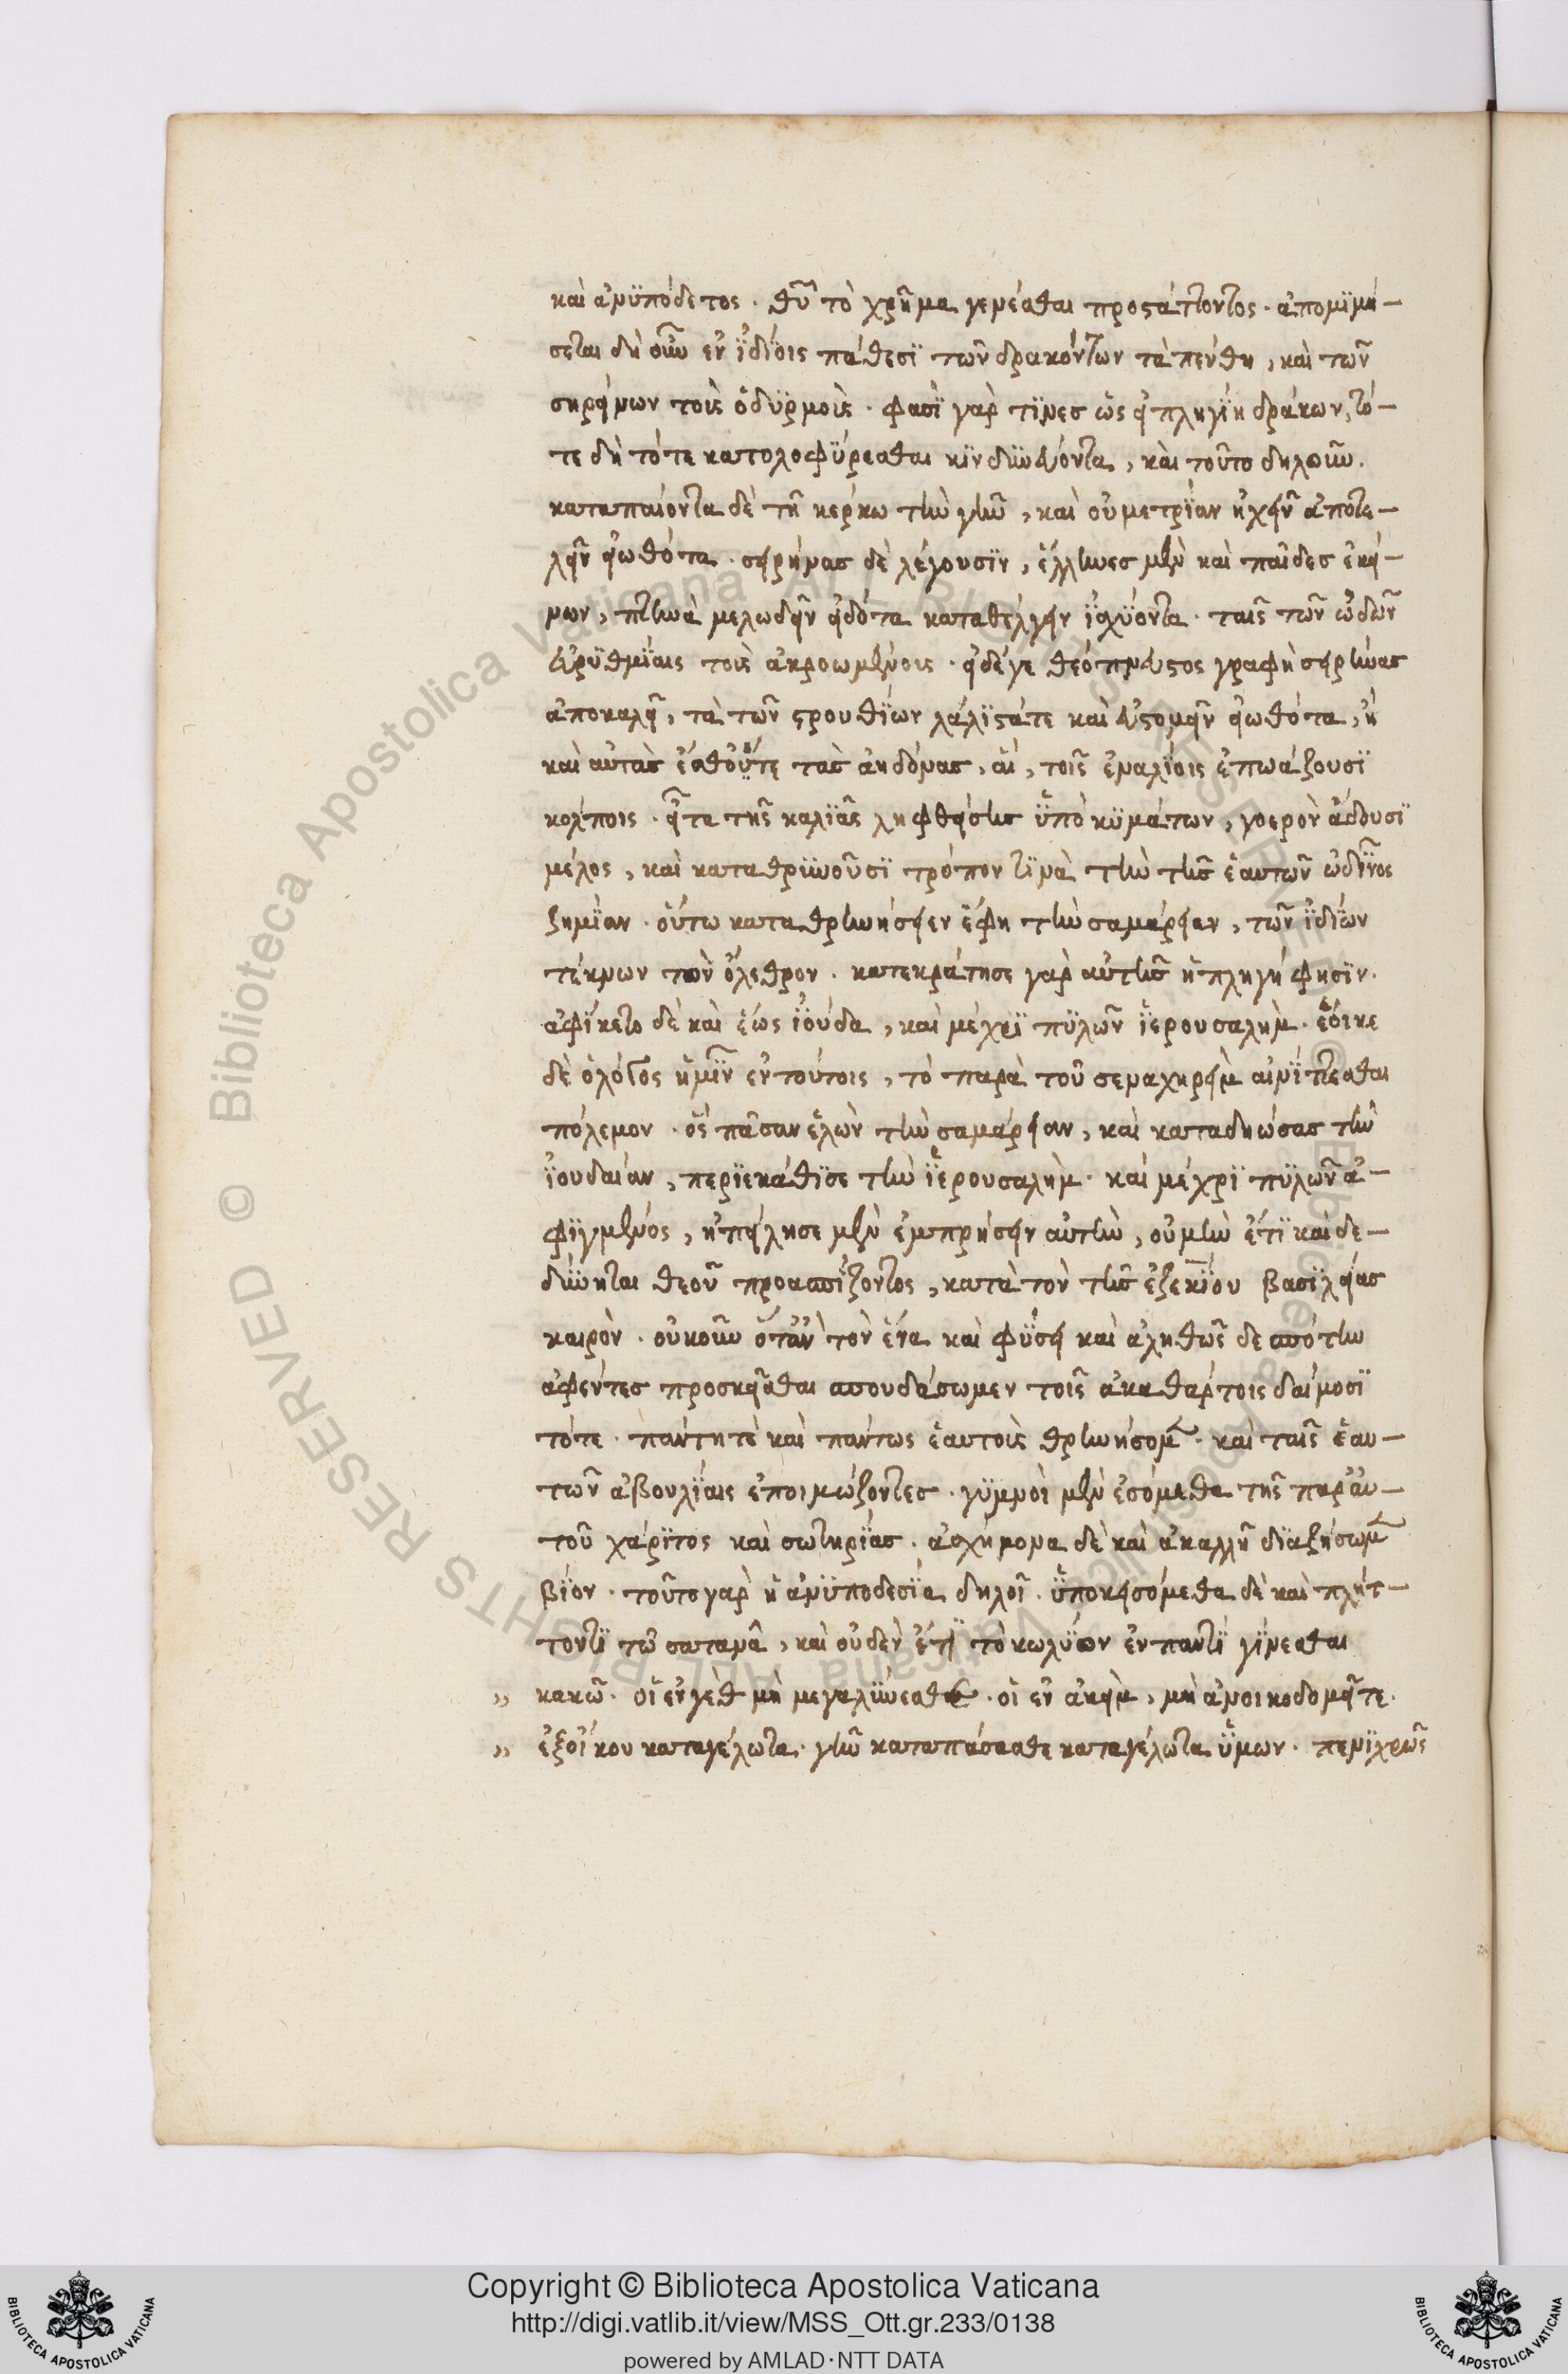 καὶ ἀνϋπόδετος. θῦ τὸ χρῆμα γενέσθαι προστάττοντος. ἀπομιμή-
σεται δὴ οὖν ἐν ἰδίοις πάθεσϊ τῶν δρακόντων τὰ πένθη, καὶ τῶν
σηρείνων τοῖς ὀδυρμοῖς. φασὶ γάρ τινες ὡς εἰ πληγείη δράκων, τό-
τε δὴ τότε κατολοφύρεσθαι κινδυνεύοντα, καὶ τοῦτο δηλοῦν.
καταπαίοντα δὲ τῆ κέρκω τὴν γῆν, καὶ οὐ μετρίαν ἠχὴν ἀποτε-
λεῖν εἰωθότα. σειρήνας δὲ λέγουσιν, ἕλληνες μὲν καὶ παῖδες ἐκεί-
νων, πτηνὰ μελωδεῖν εἰδότα καταθέλγειν ἰσχύοντα. ταῖς τῶν ὠδῶν
εὐρυθμίαις τοὺς ἀκροωμένους. ἡ δέ γε θεόπνευστος γραφὴ σειρῆνας
ἀποκαλεῖ, τὰ τῶν στρουθίων λάλίστά τε καὶ εὐστομεῖν εἰωθότα, ἢ
καὶ αὐτὰς ἔσθ' ὅτε τὰς ἀηδόνας, αἳ, τοῖς ἐναλίοις ἐπωάζουσϊ
κόλποις. εἶτα τῆς καλιᾶς ληφθείσης ὑπὸ κυμάτων, γοερὸν ἄδουσϊ
μέλος, καὶ καταθρηνοῦσϊ τρόπον τινὰ τὴν τῆς ἑαυτῶν ὠδῖνος
ζημίαν. οὕτω καταθρηνήσειν ἔφη τὴν σαμάρειαν, τῶν ἰδίων
τέκνων τὸν ὄλεθρον. κατεκράτησε γὰρ αὐτῆς ἡ πληγή φησϊν.
ἀφίκετο δὲ καὶ ἕως ἰούδα, καὶ μέχρϊ πυλῶν ἱερουσαλήμ. ἔοικε
δὲ ὁ λόγος ἡμῖν ἐν τούτοις, τὸ παρὰ τοῦ σεναχηρεὶμ αἰνίττεσθαι
πόλεμον. ὃς πᾶσαν ἑλὼν τὴν σαμάρειαν, καὶ καταδηώσας τὴν
ἰουδαίαν, περιεκάθϊσε τὴν ἱερουσαλήμ. καὶ μέχρϊ πυλῶν ἀ-
φιγμένος, ἠπείλησε μὲν ἐμπρήσειν αὐτὴν, οὐ μὴν ἔτϊ καὶ δε-
δύνηται θεοῦ προασπίζοντος, κατὰ τὸν τῆς ἐζεκίου βασιλείας
καιρόν. οὐκοῦν ὅταν τὸν ἕνα καὶ φύσει καὶ ἀληθῶς δεσπότην
ἀφέντες προσκεῖσθαι σπουδάσωμεν τοῖς ἀκαθάρτοις δαίμοσϊ
τότε. πάντη τὲ καὶ πάντως ἑαυτοὺς θρηνήσομεν. καὶ ταῖς ἑαυ-
τῶν ἀβουλίαις ἐποιμώζοντες. γυμνοὶ μὲν ἐσόμεθα τῆς παρ' αὐ-
τοῦ χάριτος καὶ σωτηρίας. ἀσχήμονα δὲ καὶ ἀκαλλῆ διαζήσωμεν
βίον. τοῦτο γὰρ ἡ ἀνυποδεσία δηλοῖ. ὑποκεισόμεθα δὲ καὶ πλήτ-
τοντϊ τῶ σατανᾶ, καὶ οὐδὲν ἔτϊ τὸ κωλύον ἐν παντϊ γίνεσθαι
» κακῶ. οἱ ἐν γὲθ μὴ μεγαλύνεσθε. οἱ ἐν ἀκεὶμ, μὴ ἀνοικοδομεῖτε.
» ἐξ οἴκου καταγέλωτα. γῆν καταπάσασθε καταγέλωτα ὑμων. πενιχρῶς